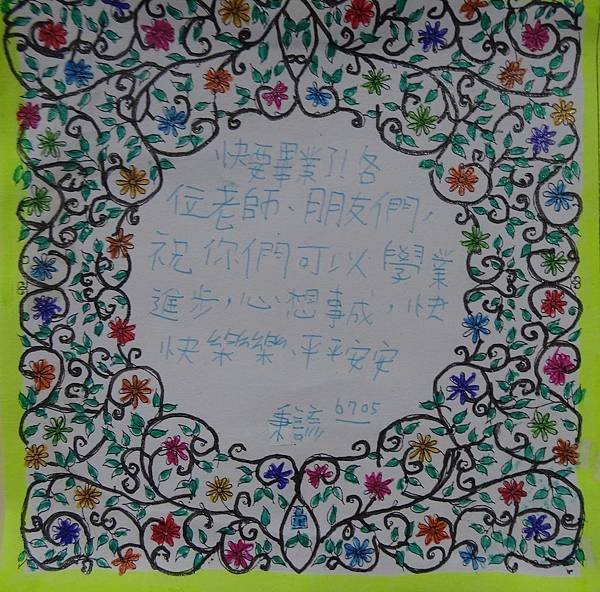 快要畢業了!各
位老師、朋友們,
祝你們可以學業
進步,心想事成,快
快樂樂、平平安安
秉諺 6705